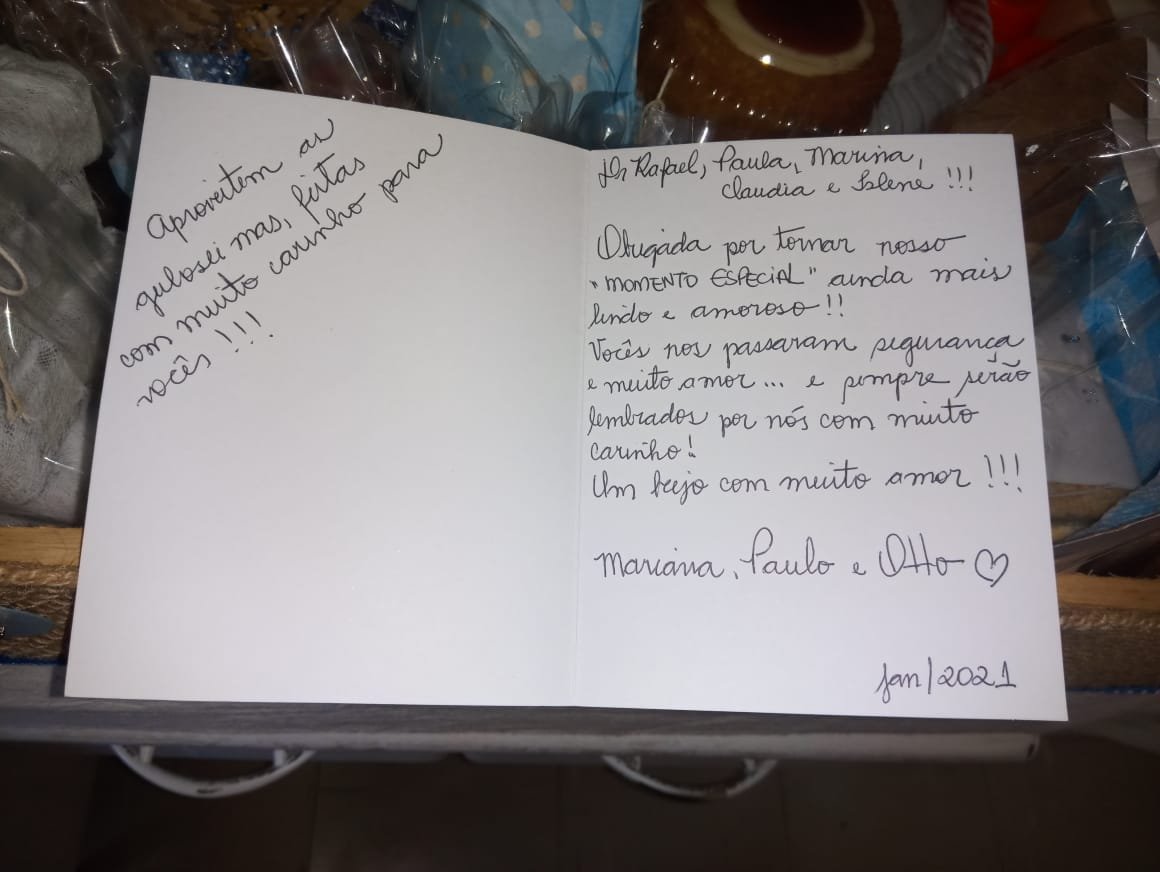 Aproveitem as
gulosei mas, feitas
com muito carinho para
vocês !!!
Dr Rafael, Paula, Marina,
Claudia e Islene !!!
Obrigada por tornar nosso
"MOMENTO ESPECIAL" ainda mais
lindo e amoroso!!
Vocês nos passaram segurança
e muito amor... e sempre serão
lembrados por nós com muito
carinho!
Um beijo com muito amor !!!
Mariana, Paulo e Otto ♡
jan/2021